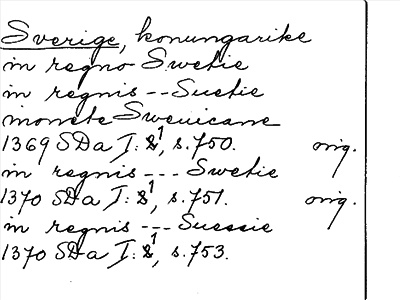 Sverige, konungarike
in regno Swetie
in regnis -- Suetie
monete Sweuicane
1369 SDa I: 1, s. 750. orig.
in regnis --- Swetie
1370 SDa I: 1, s. 751. orig.
in regnis --- Suessie
1370 SDa I: 1, s. 753.